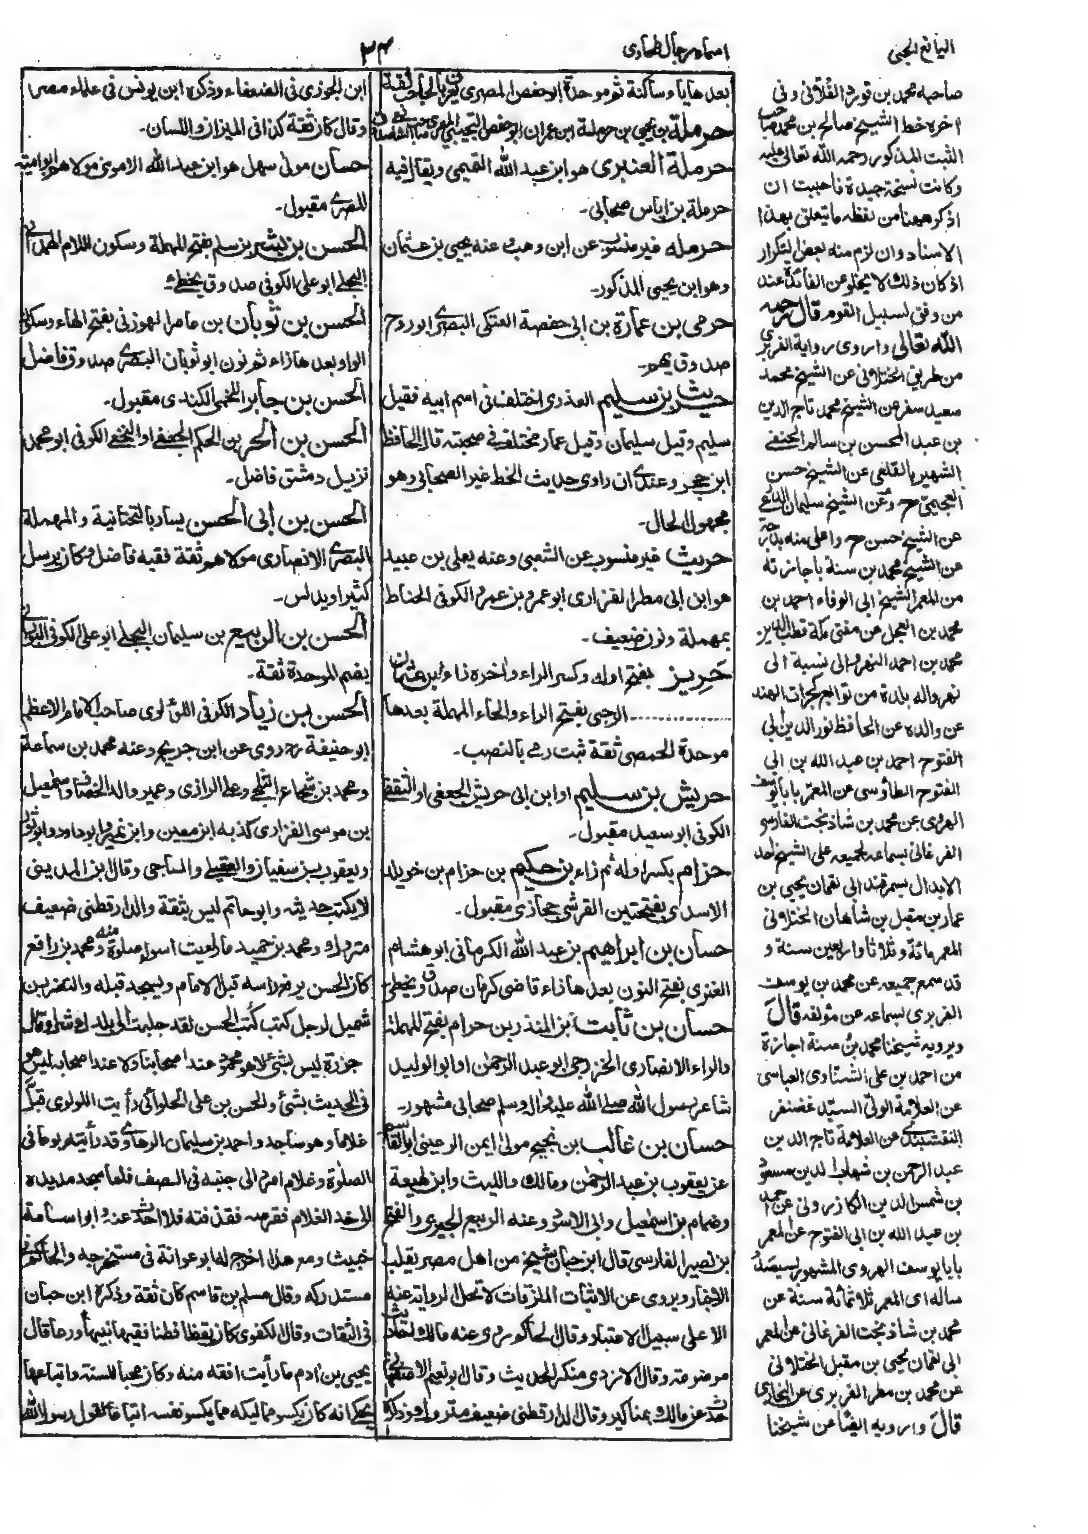 اليانع الجنى
اسماء رجال طحاوى
٣٤
بعدها ياء ساكنة ثم موحدة ابو حفص المصرى
حرملة بن يحيى بن حرملة ابن عمران ابو حفص التجيبى المصرى صاحب الشافعى
حرملة العنبرى هو ابن عبد الله التميمى ويقال فيه
حرملة بن اياس صحابى۔
حرمله غير منسوب عن ابن وهب عنه يحيى بن عثمان
وهو ابن يحيى المذكور۔
حرمى بن عمارة بن ابى حفصة العتكى البصرى ابو روح
صدوق يهم۔
حريث بن سليم العذرى اختلف فى اسم ابيه فقيل
سليم وقيل سليمان وقيل عمار مختلف فى صحبته قال الحافظ
ابن حجر وعندى ان راوى حديث الخط غير الصحابى وهو
مجهول الحال۔
حريث غير منسوب عن الشعبى وعنه يعلى بن عبيد
هو ابن ابى مطر الفزارى ابو عمرو بن عمرو الكوفى الحناط
بمهملة ونون ضعيف۔
حَرِيز بفتح اوله وكسر الراء واخره زاء ابن عثمان
الرحبى بفتح الراء والحاء المهملة بعدها
موحدة الحمصى ثقة ثبت رمى بالنصب۔
حريش بن سليم او ابن ابى حريش الجعفى او الثقفى
الكوفى ابو سعيد مقبول۔
حزام بكسر اوله ثم زاء بن حكيم بن حزام بن خويلد
الاسدى بفتحتين القرشى حجازى مقبول۔
حسان بن ابراهيم بن عبد الله الكرمانى ابو هشام
العنزى بفتح النون بعدها زاء قاضى كرمان صدوق يخطى۔
حسان بن ثابت ابن المنذر بن حرام بفتح المهملة
والراء الانصارى الخزرجى ابو عبد الرحمٰن او ابو الوليد
شاعر رسول الله صلے الله عليه واله وسلم صحابى مشهور۔
حسان بن غالب بن نجيح مولىٰ ايمن الرعينى ابو القاسم
عن يعقوب بن عبد الرحمٰن ومالك والليث وابن لهيعة
وضمام بن اسمٰعيل وابى الاسود وعنه الربيع الجيزى والفتح
بن نصير الفارسى قال ابن حبان شيخ من اهل مصر يقلب
الاخبار ويروى عن الاثبات الملزقات لا تحل الرواية عنه
الا على سبيل الاعتبار وقال الحاكم روى عنه مالك احاديث
موضوعة وقال الازدى منكر الحديث وقال ابو نعيم الاصبهانى
حدث عن مالك بمناكير وقال الدارقطنى ضعيف متروك وذكره
ابن الجوزى فى الضعفاء وذكره ابن يونس فى علماء مصر
وقال كان ثقة كذا فى الميزان واللسان۔
حسان مولى سهل هو ابن عبد الله الاموى مولاهم ابو امية
المصرى مقبول۔
الحسن بن بشير بن سلم بفتح المهملة وسكون اللام الهمدانى
البجلى ابو على الكوفى صدوق يخطئ
الحسن بن ثوبان بن عامر الهوزنى بفتح الهاء وسكون
الواو بعدها زاء ثم نون ابو ثوبان البصرى صدوق فاضل
الحسن بن جابر اللخمى الكندى مقبول۔
الحسن بن الحر بن الحكم الجعفى او النخعى الكوفى ابو محمد
نزيل دمشق فاضل۔
الحسن بن ابى الحسن يسار بالتحتانية والمهملة
البصرى الانصارى مولاهم ثقة فقيه فاضل وكان يرسل
كثيرا ويدلس۔
الحسن بن الربيع بن سليمان البجلى ابو على الكوفى البورانى
بضم الموحدة ثقة۔
الحسن بن زياد الكوفى اللؤلوى صاحب الامام الاعظم
ابو حنيفة روى عن ابن جريج وعنه محمد بن سماعة
ومحمد بن شجاع الثلجى وعلى الرازى وعمرو والد الخصاف واسمٰعيل
بن موسى الفزارى كذبه ابن معين وابن نمير وابو داود وابو ثور
ويعقوب بن سفيان والعقيلى والساجى وقال ابن المدينى
لا يكتب حديثه وابو حاتم ليس بثقة والدارقطنى ضعيف
متروك ومحمد بن حميد ما رأيت اسوأ صلوة منه ومحمد بن رافع
كان الحسن يرفع راسه قبل الامام ويسجد قبله والنضر بن
شميل لرجل كتب كتب الحسن لقد جلبت الى بلدك شرا وقال
جزرة ليس بشئ لا هو محمود عند اصحابنا ولا عند اصحابه ليس هو
فى الحديث بشئ والحسن بن على الحلوانى رأيت اللؤلوى قبل
غلاما وهو ساجد واحمد بن سليمان الرهاوى قد رأيته يوما فى
الصلوة وغلام امرد الى جنبه فى الصف فلما سجد مد يده
الى خد الغلام فقرصه فقذفته فلا احدث عنه وابو اسامة
خبيث ومع هذا اخرج له ابو عوانة فى مستخرجه والحاكم فى
مستدركه وقال مسلم بن قاسم كان ثقة وذكره ابن حبان
فى الثقات وقال لكفوى كان يقظا فطنا فقيها نبيها ورعا قال
يحيى بن ادم ما رأيت افقه منه وكان محبا للسنة واتباعها
يحكى انه كان يكسو مماليكه مما يكسو نفسه اتباعا لقول رسول الله
صاحبه محمد بن نوره الفلانى وفى
اخره خط الشيخ صالح بن محمد صاحب
الثبت المذكور رحمه الله تعالى عليه
وكانت نسخة جيدة فاحببت ان
اذكر ههنا من لفظه ما يتعلق بهذا
الاسناد وان لزم منه بعض التكرار
اذ كان ذلك لا يخلو عن الفائدة عند
من وفق لسبيل القوم قال رحمه
الله تعالىٰ واروى رواية الفربرى
من طريق الختلانى عن الشيخ محمد
سعيد سفر عن الشيخ محمد تاج الدين
بن عبد المحسن بن سالم الحنفى
الشهير بالقلعى عن الشيخ حسن
العجيمى ح وعن الشيخ سليمان الدرعى
عن الشيخ حسن ح واعلى منه بدرجة
عن الشيخ محمد بن سنة باجازته
من المعمر الشيخ ابى الوفاء احمد بن
محمد بن العجل عن مفتى مكة قطب الدين
محمد بن احمد النهروالى نسبة الى
نهرواله بلدة من توابع كجرات الهند
عن والده عن الحافظ نور الدين ابى
الفتوح احمد بن عبد الله بن ابى
الفتوح الطاؤسى عن المعمر بابا يوسف
الهروى عن محمد بن شاذ بخت الفارسى
الفرغانى بسماعه لجميعه على الشيخ احد
الابدال بسمرقند ابى لقمان يحيى بن
عمار بن مقبل بن شاهان الختلانى
المعمر مائة وثلاثا واربعين سنة و
قد سمع جميعه عن محمد بن يوسف
الفربرى بسماعه عن مؤلفه قال
ويرويه شيخنا محمد بن سنة اجازة
من احمد بن على الشناوى العباسى
عن العلامة الولى السيد غضنفر
النقشبندى عن العلامة تاج الدين
عبد الرحمن بن شهاب الدين مسعود
بن شمس الدين الكازرونى عن احمد
بن عبد الله بن ابى الفتوح عن المعمر
بابا يوسف الهروى المشهور بسيصد
ساله اى المعمر ثلاثمائة سنة عن
محمد بن شاذ بخت الفرغانى عن المعمر
ابى لقمان يحيى بن مقبل الختلانى
عن محمد بن مطر الفربرى عن البخارى
قال وارويه ايضا عن شيخنا